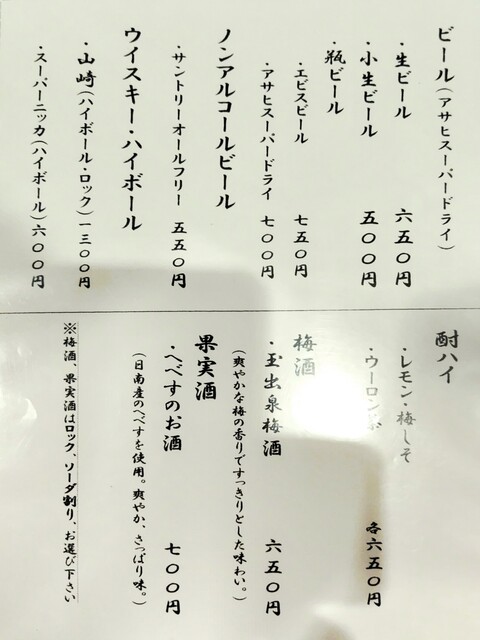 ビール（アサヒスーパードライ）
・生ビール 六五〇円
・小生ビール 五〇〇円
瓶ビール
・エビスビール 七五〇円
・アサヒスーパードライ 七〇〇円
ノンアルコールビール
・サントリーオールフリー 五五〇円
ウイスキー・ハイボール
・山崎（ハイボール・ロック）一三〇〇円
・スーパーニッカ（ハイボール）六〇〇円
酎ハイ
・レモン・梅しそ
・ウーロン 各六五〇円
梅酒
・玉出泉梅酒 六五〇円
（爽やかな梅の香りですっきりとした味わい。）
果実酒
・へべすのお酒 七〇〇円
（日南産のへべすを使用。爽やか、さっぱり味。）
※梅酒、果実酒はロック、ソーダ割り、お選び下さい